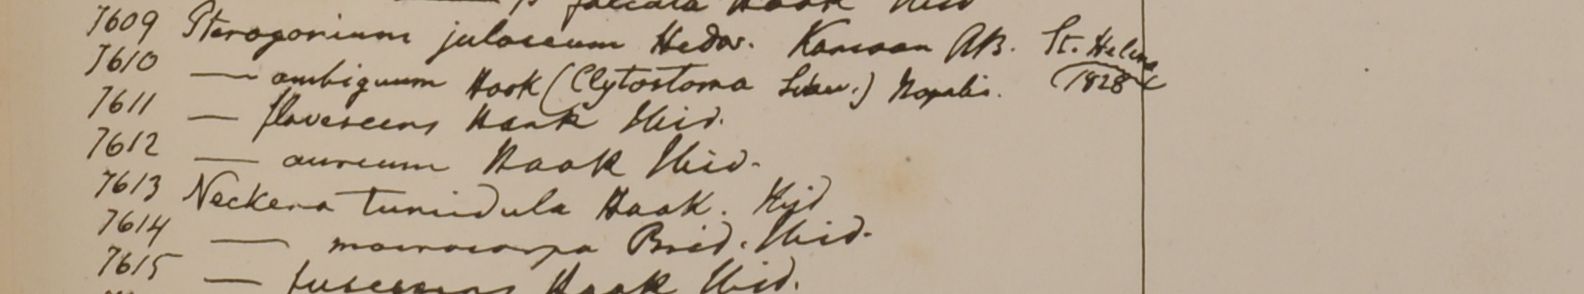 falcata Hook Ibid
7609 Pterogonium julaceum Hedw. Kamaon RB. St. Helena
7610 — ambiguum Hook (Clytostoma) Nepalia. (1828
7611 — flavescens Hook Ibid.
7612 — aureum Hook Ibid.
7613 Neckera tumidula Hook. Ibid
7614 — macrocarpa Brid. Ibid.
7615 — fuscescens Hook Ibid.